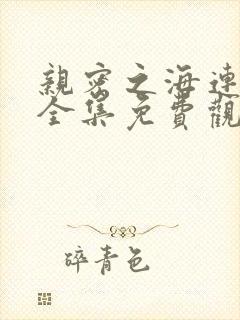 親密之海連
全集免費觀
碎青色